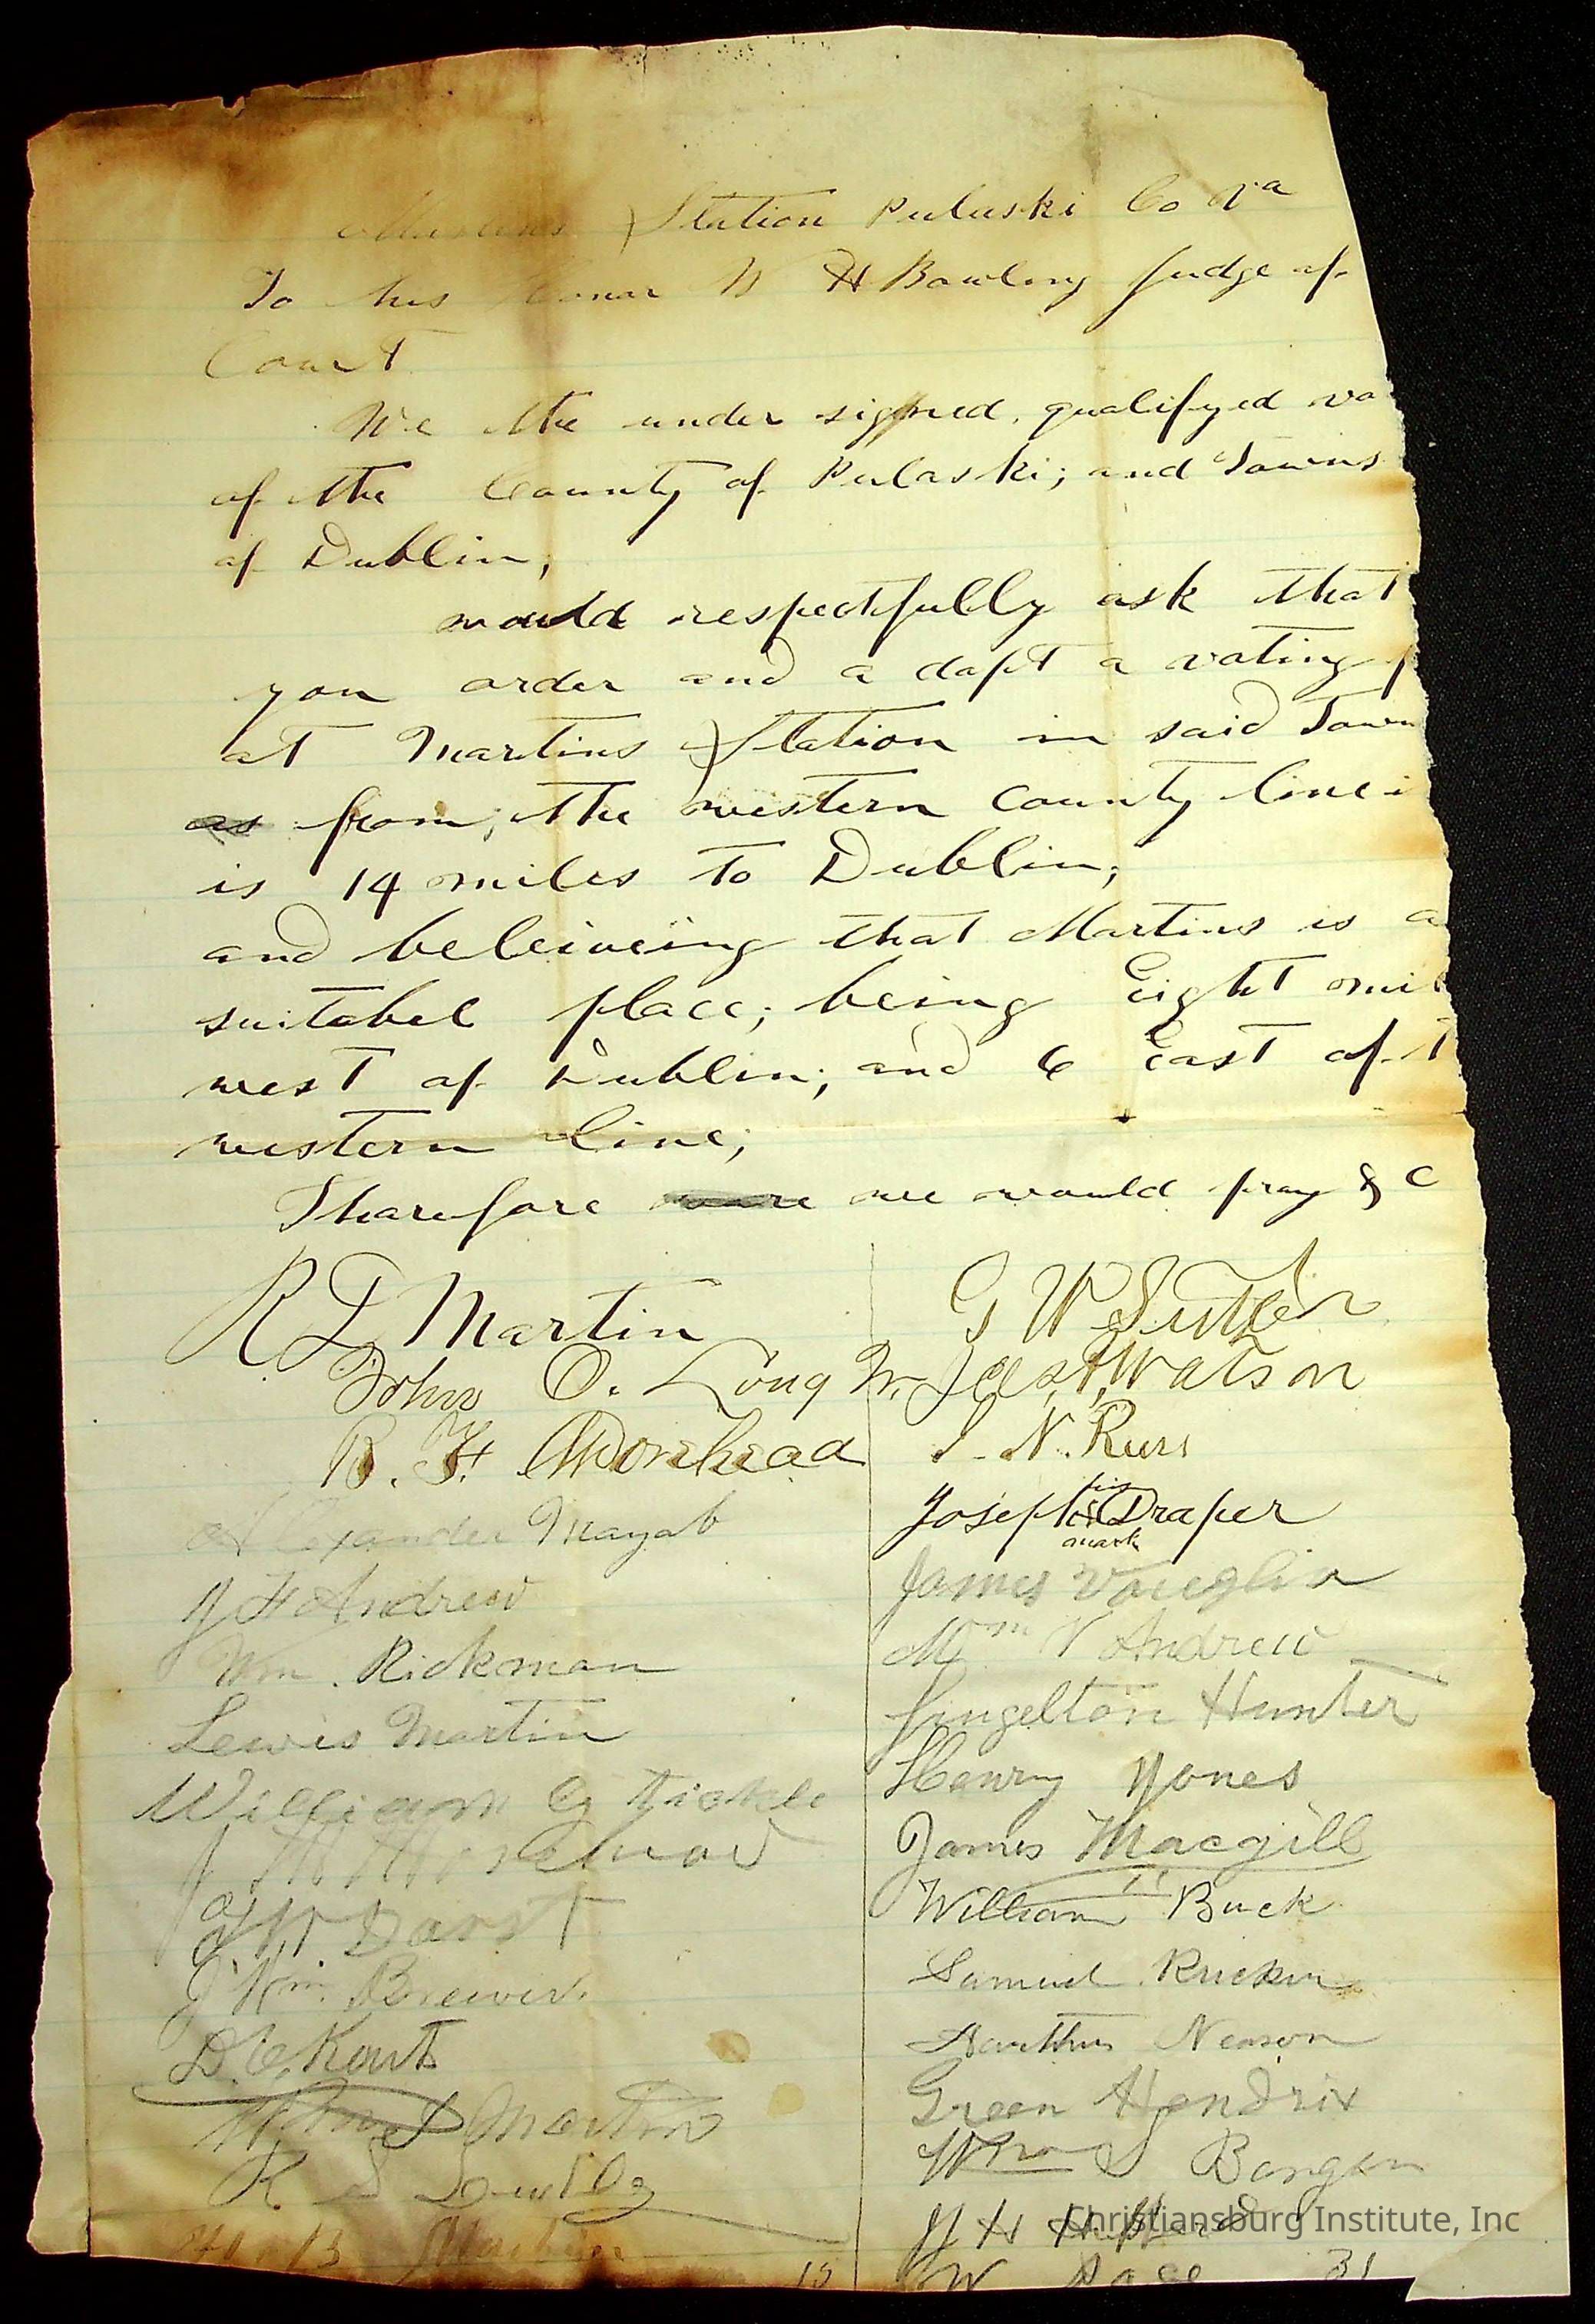 Martins Station Pulaski Co Va
To his Honor W H Bowling Judge of
Court
We the under signed, qualifyed vo
of the County of Pulaski; and Towns
of Dublin;
would respectfully ask that
you order and a dapt a voting p
at Martins Station in said Town
as from; the western County line i
is 14 miles to Dublin;
and beleiveing that Martins is a
suitabel place; being Eight mil
west of Dublin; and 6 East of t
western line;
Tharefore we would pray & C
R D Martin
John O. Long
B. F. Moorehead
Alexander Mayab
J H Andrew
Wm. Rickman
Lewis Martin
William G Tickle
J W Darst
J Wm. Brewer
D. C. Kout
Martin
R S
15
G W Sutten
Watson
J. N. Russ
Joseph his x mark Draper
James Vaughn
Wm V Andrew
Singelton Hunter
Henry Jones
James Macgill
William Buck
Samuel Rucker
Nenson
Green Hendrix
Wm S
J H
W Page 31
Christiansburg Institute, Inc